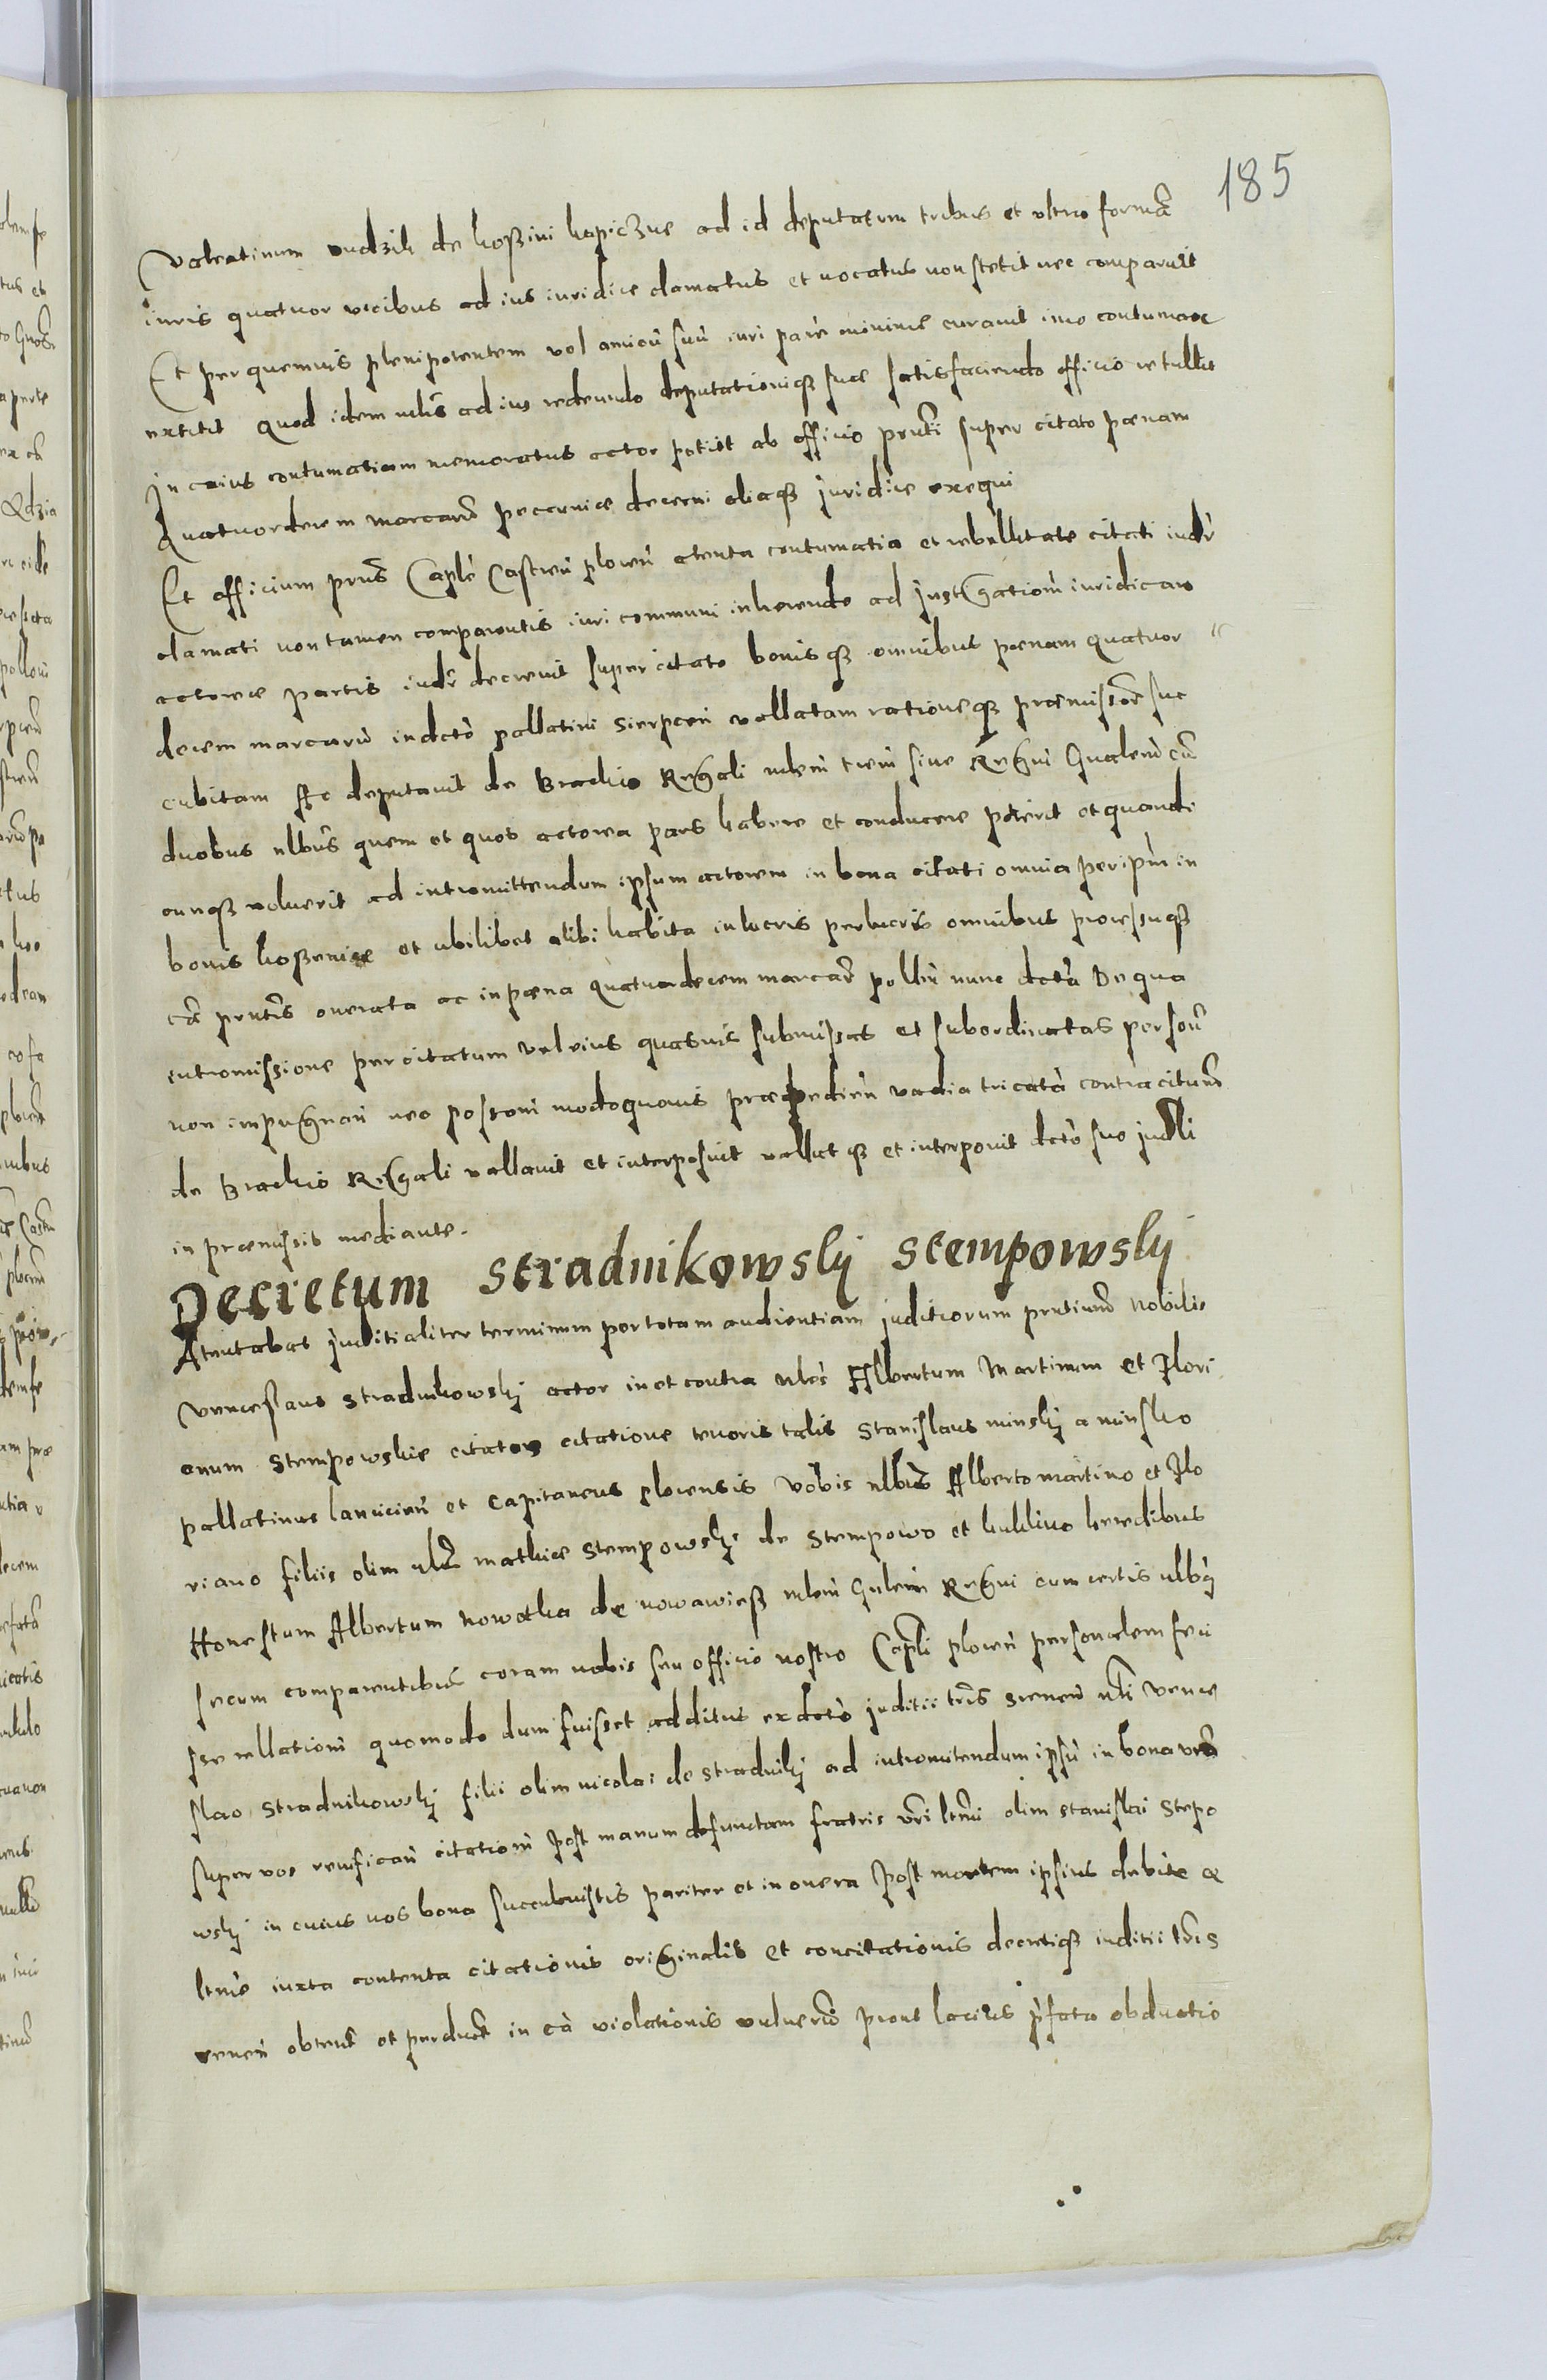 185
Valentinum rudzik de koßini kapiczne ad id deputatum tribus et ultra formã
iuris quatuor vicibus ad ius iuridice clamatus et vocatus non stetit nec comparuit
Et per quemuis plenipotentem vel amicũ suũ iuri parẽ minime curauit imo contumax
extitit Quod idem ad ius redeundo deputationiqꝫ suæ satisfaciendo officio retullit
In cuius contumatiam memoratus actor petiit ab officio pñti super citato pænam
Quatuordecem marcarũ pecuniæ decerni aliaqꝫ juridice exequi
Et officium pñs Caplẽ Castreñ ploceñ atenta contumatia et rebellitate citati iudr̃
clamati non tamen comparentis iuri communi inherendo ad Instigationẽ iuridicam
actoreæ partis iudr̃ decreuit super citato bonisqꝫ omnibus pænam quatuor
decem marcarũ in dcto pallatini Sierpceñ vallatam rationeqꝫ præmissorũ suc
cubitam Ac deputauit de Brachio Regali siue Regni Gñalem cũ
duobus nlbus quem et quos actorea pars habere et conducere poterit et quando
cunqꝫ voluerit ad intromittendum ipsum actorem in bona citati omnia per ipm in
bonis koßeniæ et ubilibet alibi habita in lucris perlucris omnibus processuqꝫ
cã pñtis onerata ac in pæna quatuordecem marcarũ nunc De qua
intromissione per citatum vel eius quasuis submissas et subordinatas personas
non impugnan nec possoni modoquouis præpedien vadia tricata contra citatũ
de Brachio Regali vallauit et interposuit vallatqꝫ et interponit dcto suo judli
in præmissis mediante.
Decretum Stradnikowsky Stempowsky
Atentabat juditialiter terminum per totam audientiam juditiorum pñtium Nobilis
Venceslaus Stradnikowsky actor in et contra nles Albertum Martinum et Flori
anum Stempowskie citatos citatione tenoris talis Stanislaus minsky a minsko
pallatinus lancicien et Capitaneus plocensis vobis nlbus Alberto martino et Flo
riano filiis olim mathiæ Stempowsky de Stempowo et heredibus
Honestum Albertum Nowotka de nowawieß Regni cum certis nlbꝫ
secum comparentibus coram nobis seu officio nostro Capli ploceñ personalem feci
sse rellationẽ quomodo dum fuisset additus ex dcto juditii tris nli vence
slao Stradnikowsky filii olim nicolai de stradniky ad intromitendum ipsũ in bona vrã
super vos citationẽ post manum defunctam fratris vri olim stanislai Stepo
wsky in cuius vos bona succubuistis pariter et in onera Post mortem ipsius debite ac
ltme iuxta contenta citationis originalis et concitationis decretiqꝫ iuditii tris
obtent et perduct in cã violationis vulnerũ prout latius p̃fata obductio